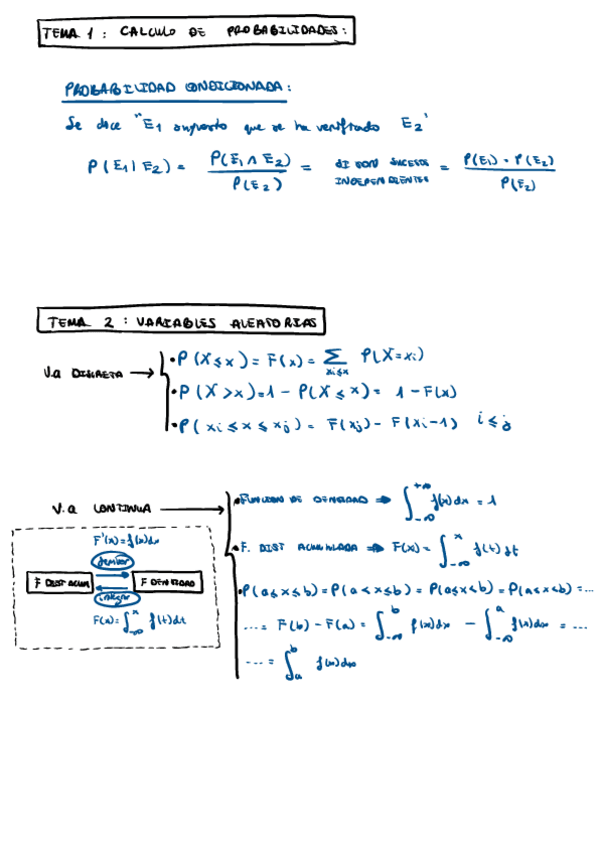 TEMA 1 : CALCULO DE PROBABILIDADES :
PROBABILIDAD CONDICIONADA :
Se dice "E1 supuesto que se ha verificado E2"
P(E1 | E2) = P(E1 ∧ E2) / P(E2) = SI SON SUCESOS INDEPENDIENTES = P(E1) · P(E2) / P(E2)
TEMA 2 : VARIABLES ALEATORIAS
V.a DISCRETA →
• P(X ≤ x) = F(x) = Σ xi≤x P(X = xi)
• P(X > x) = 1 - P(X ≤ x) = 1 - F(x)
• P(xi ≤ x ≤ xj) = F(xj) - F(xi-1) i ≤ j
V.a CONTINUA →
• FUNCION DE DENSIDAD ⇒ ∫_{-∞}^{+∞} f(x)dx = 1
• F. DIST ACUMULADA ⇒ F(x) = ∫_{-∞}^{x} f(t)dt
• P(a ≤ x ≤ b) = P(a < x ≤ b) = P(a ≤ x < b) = P(a < x < b) = ...
... = F(b) - F(a) = ∫_{-∞}^{b} f(x)dx - ∫_{-∞}^{a} f(x)dx = ...
... = ∫_{a}^{b} f(x)dx
F'(x) = f(x)dx
derivar
F DIST ACUM
F DENSIDAD
integrar
F(x) = ∫_{-∞}^{x} f(t)dt